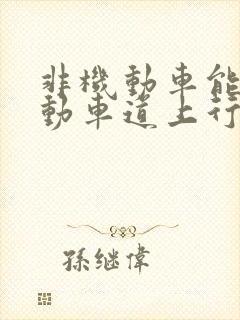 非機動車能
動車道上行
孫继偉